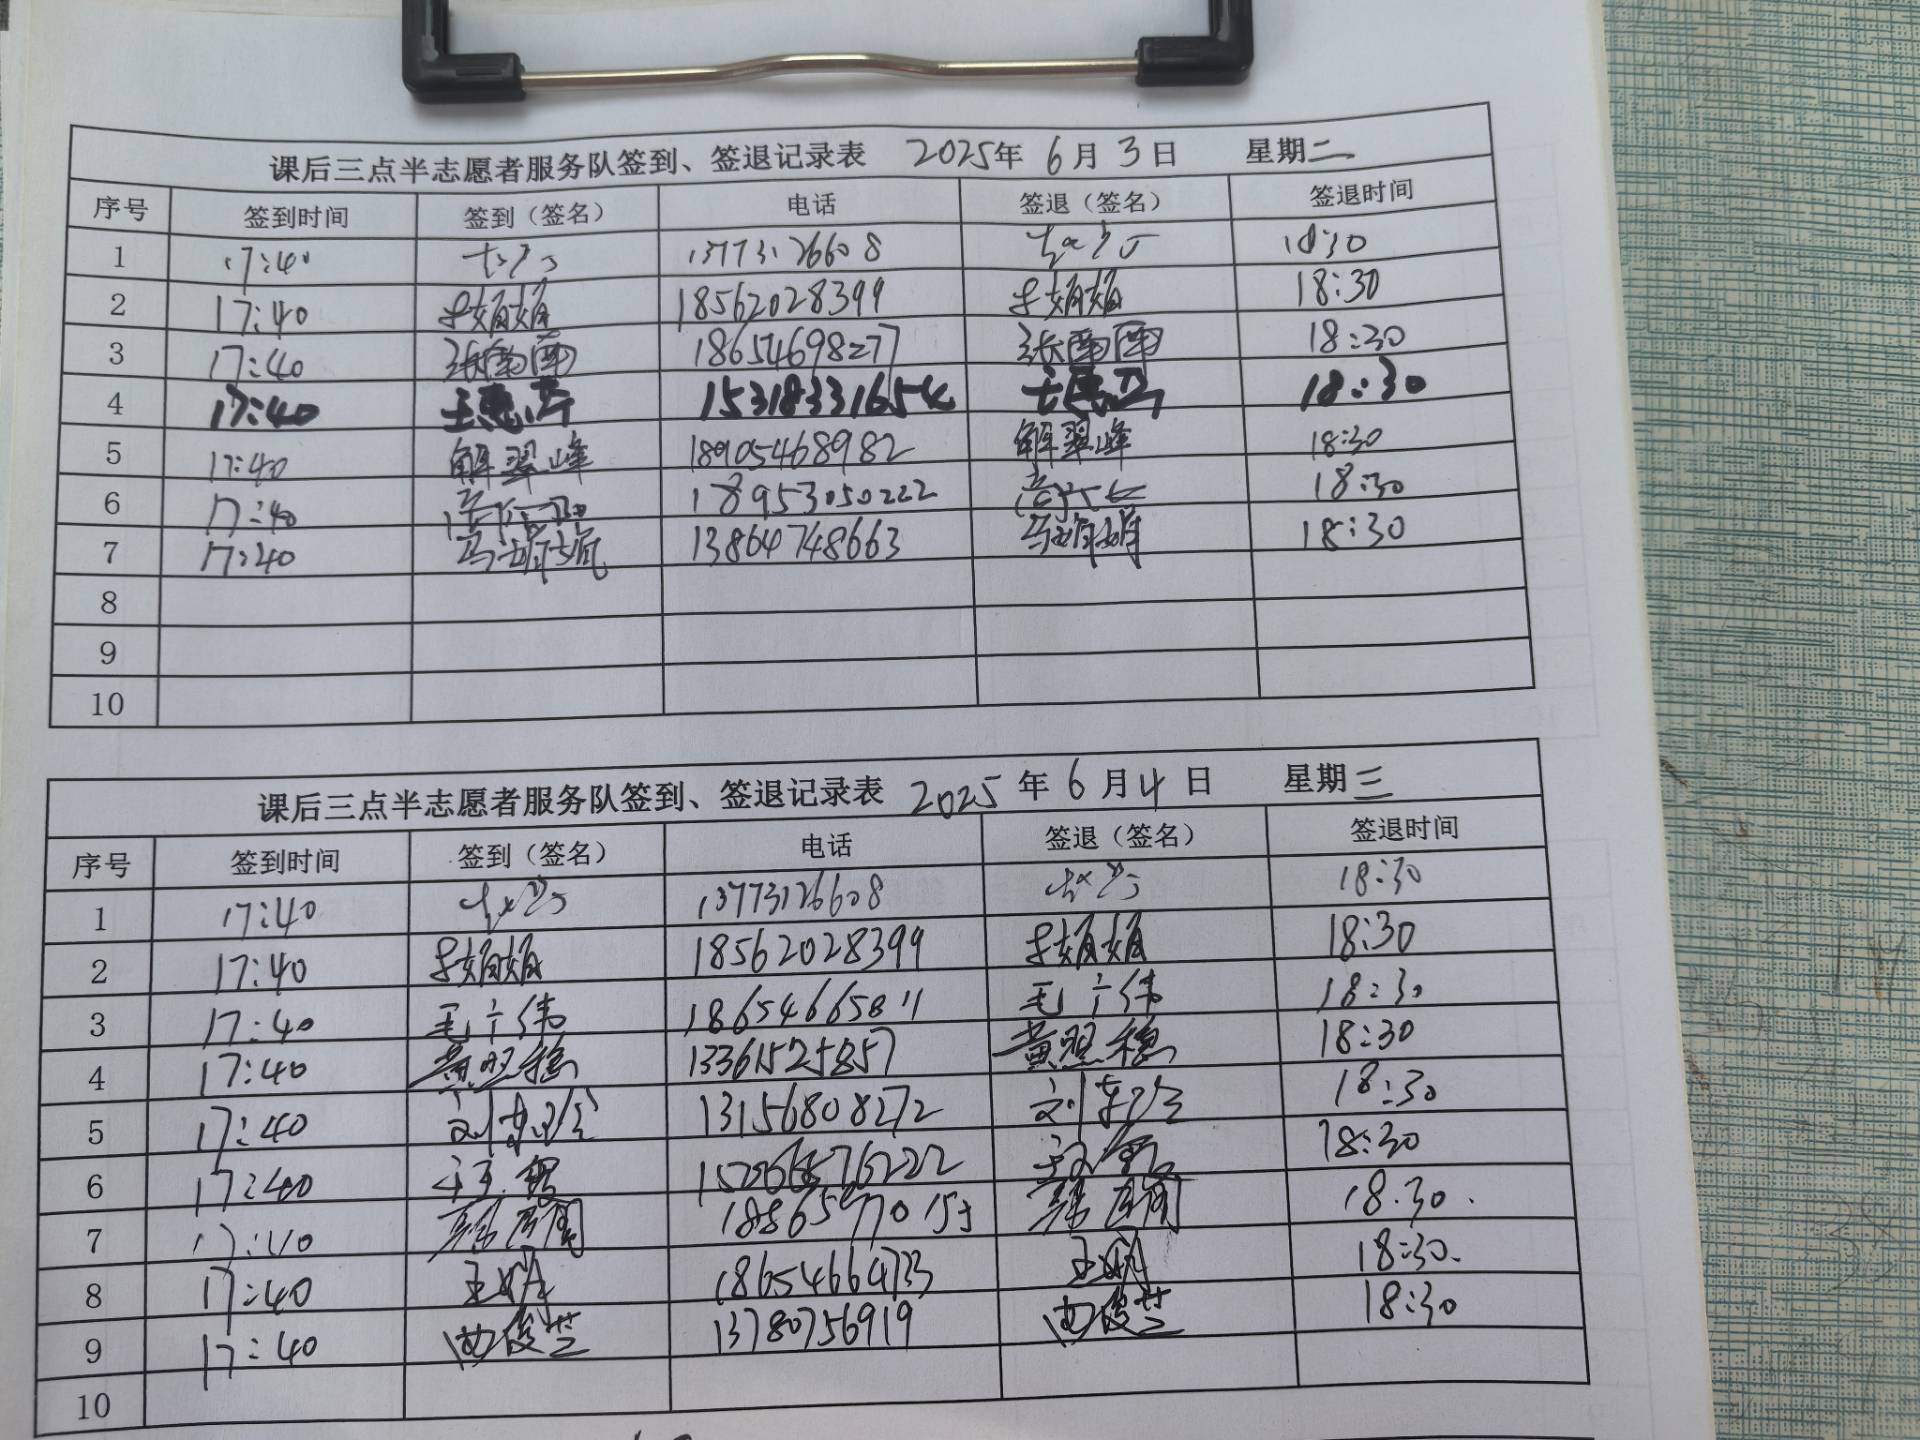 课后三点半志愿者服务队签到、签退记录表 2025年 6月 3日 星期二
序号 签到时间 签到（签名） 电话 签退（签名） 签退时间
1 17:40 13773126608 18:30
2 17:40 娟娟 18562028399 娟娟 18:30
3 17:40 张雷雷 18654698277 张雷雷 18:30
4 17:40 15318331654 18:30
5 17:40 解翠峰 18905468982 解翠峰 18:30
6 17:40 18953050222 18:30
7 17:40 13864748663 18:30
8
9
10
课后三点半志愿者服务队签到、签退记录表 2025年 6月 4日 星期三
序号 签到时间 签到（签名） 电话 签退（签名） 签退时间
1 17:40 13773126608 18:30
2 17:40 娟娟 18562028399 娟娟 18:30
3 17:40 毛广伟 18654665811 毛广伟 18:30
4 17:40 黄照稳 13361525857 黄照稳 18:30
5 17:40 13156808272 18:30
6 17:40 18:30
7 17:40 18:30
8 17:40 18654664733 18:30
9 17:40 西俊芝 13780756919 西俊芝 18:30
10